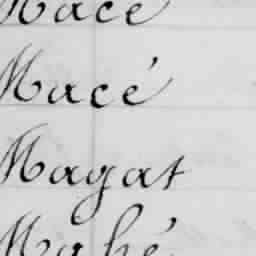 Macé
Macé
Magat
Mahé